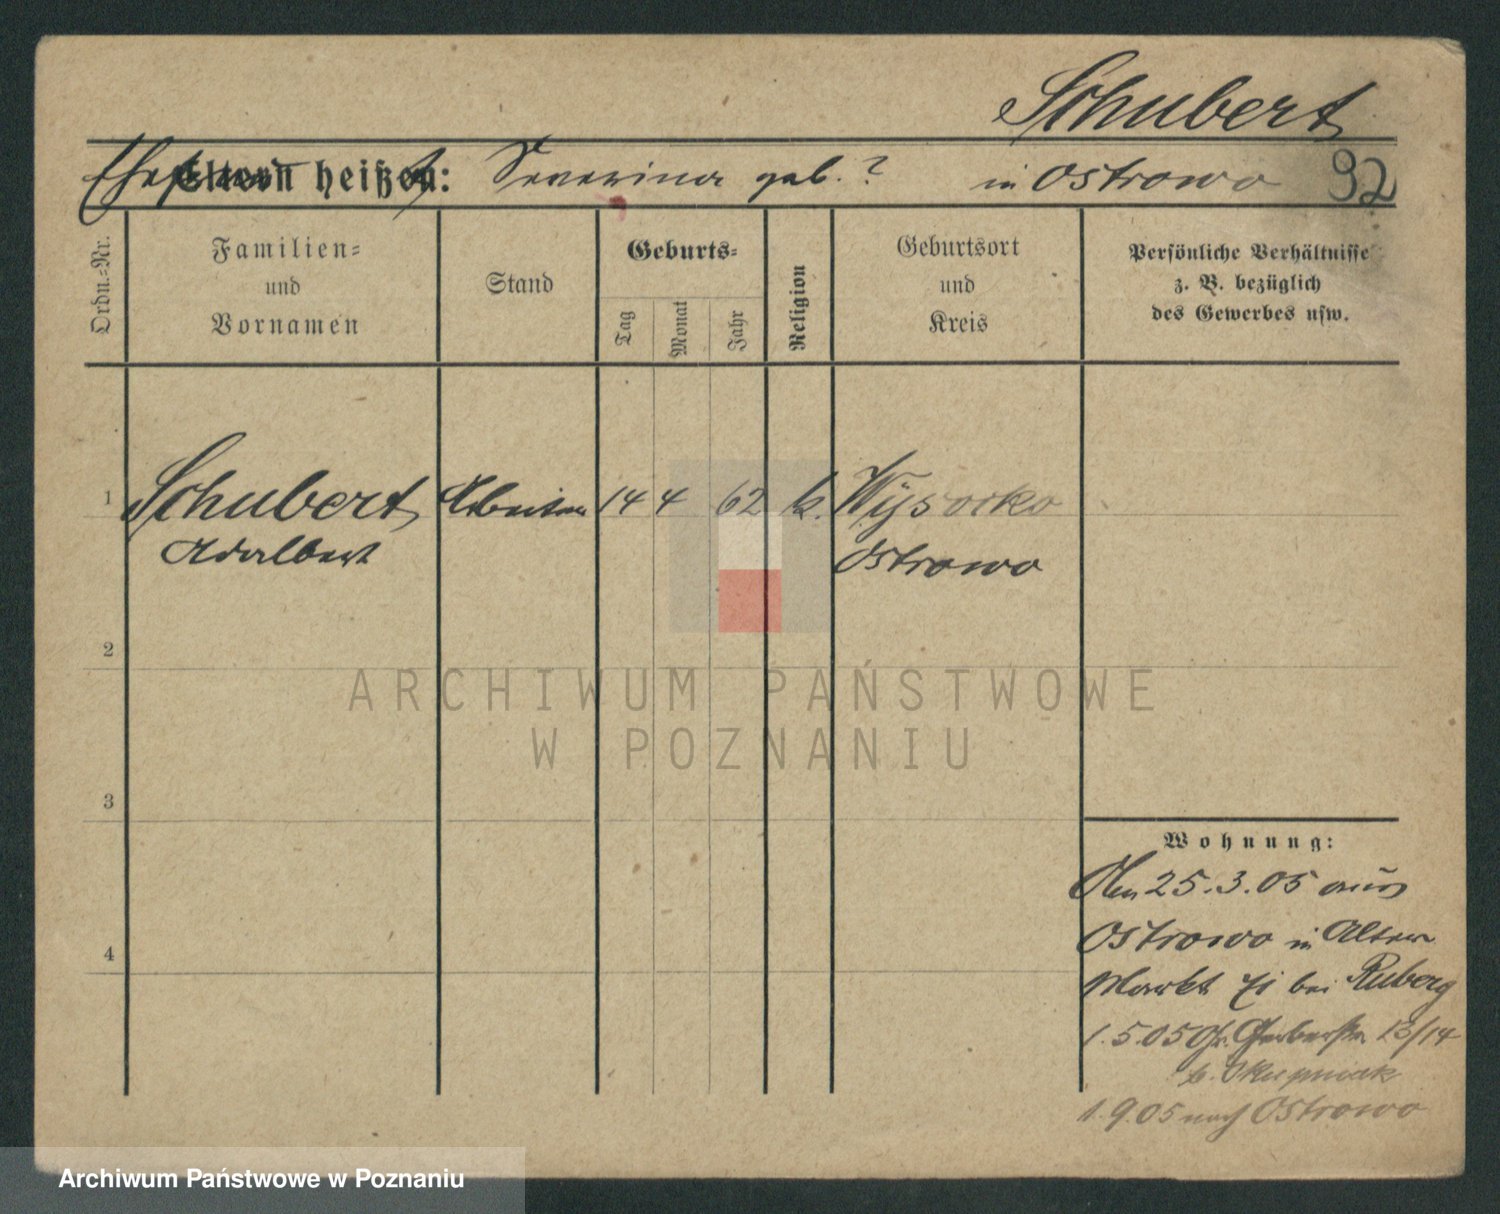 Schubert
Ehefrau heißt: Severina geb. ? in Ostrowo 92
Ordn.-Nr.
Familien-
und
Vornamen
Stand
Geburts-
Tag
Monat
Jahr
Religion
Geburtsort
und
Kreis
Persönliche Verhältnisse
z. B. bezüglich
des Gewerbes usw.
1 Schubert Arbeiter 14 4 62 k. Wysocko
Adalbert Ostrowo
2
3
4
Wohnung:
Den 25.3.05 aus
Ostrowo in Alter
Markt bei Ruberg
1.5.05 Gr. Gerberstr. 13/14
b. Skupniak
1.9.05 nach Ostrowo
ARCHIWUM PAŃSTWOWE
W POZNANIU
Archiwum Państwowe w Poznaniu